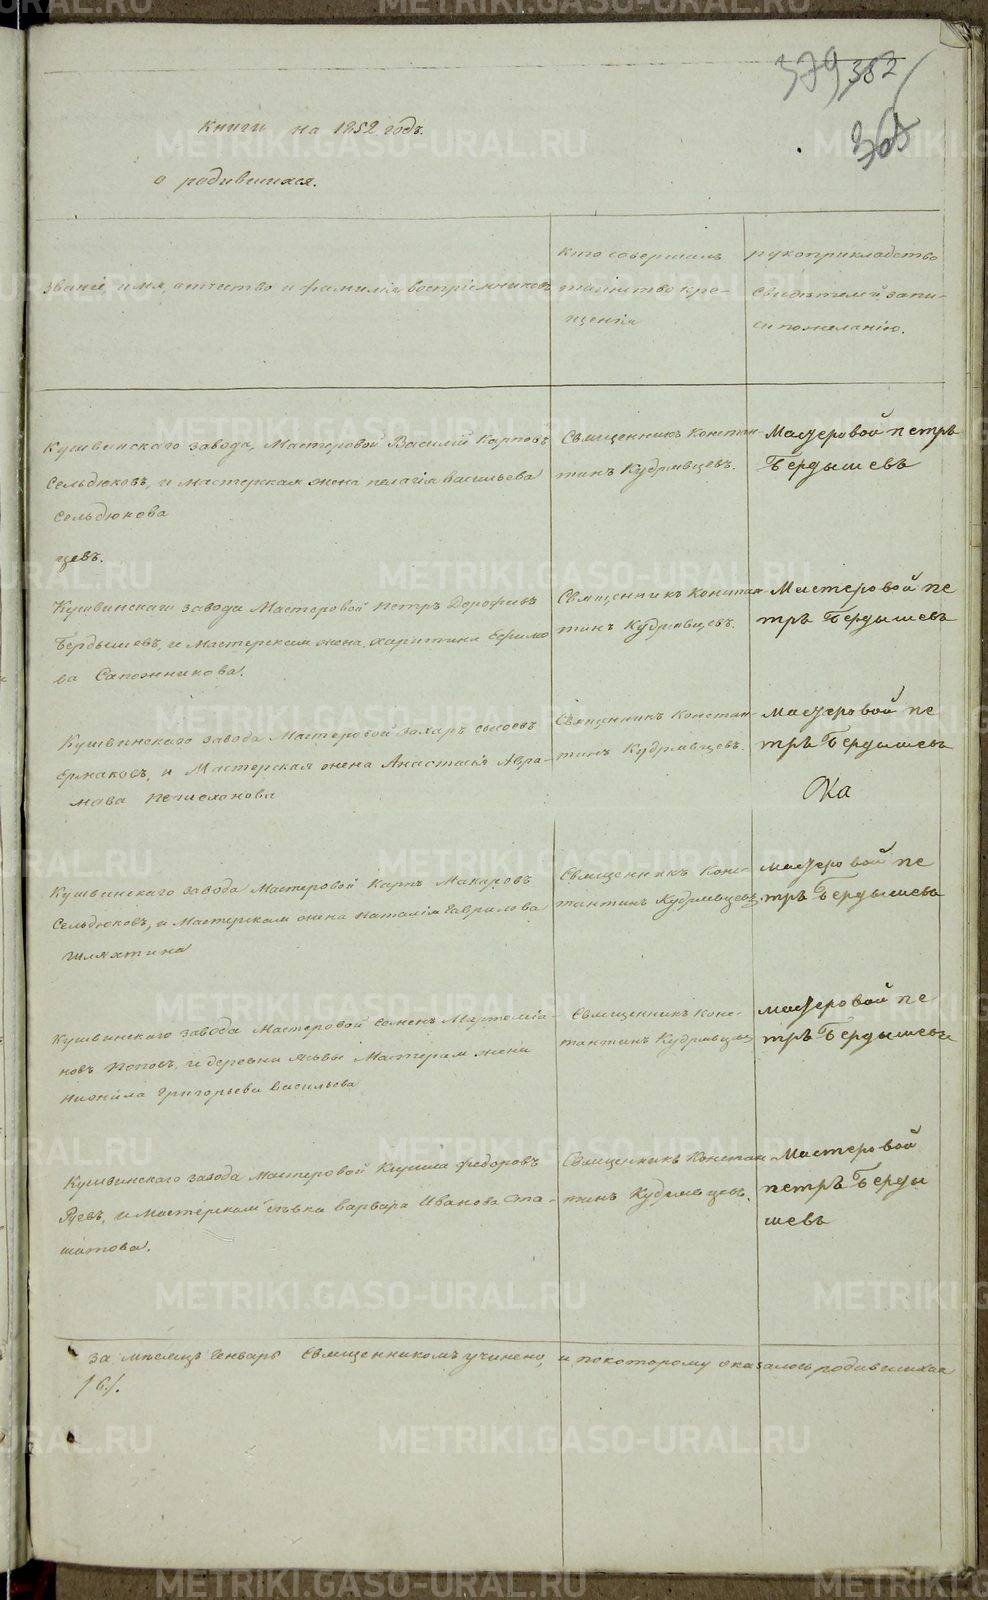 379 382
365
книги на 1852 годъ.
о родившихся.
Званіе, имя, отчество и фамилія воспріемниковъ
Кто совершалъ
таинство кре-
щенія
рукоприкладство
свидѣтелей запи-
си по желанію.
Кушвинскаго завода, Мастеровой Василій Карповъ
Сельдюковъ, и мастерская жена пелагія васильева
Сельдюкова
Священникъ Констан-
тинъ Кудрявцевъ.
Мастеровой петръ
Бердышевъ
щевъ.
Кушвинскаго завода Мастеровой Петръ Дорофѣевъ
Бердышевъ, и Мастерская жена, харитина Ефимо
ва Сапожникова.
Священникъ Констан
тинъ Кудрявцевъ.
Мастеровой пе
тръ Бердышевъ
Кушвинскаго завода Мастеровой Захаръ сысоевъ
Ермаковъ, и Мастерская жена Анастасія Авра-
мова
Священникъ Констан-
тинъ Кудрявцевъ.
Мастеровой пе
тръ Бердышевъ
Кушвинскаго завода Мастеровой Карпъ Макаровъ
Сельдюковъ, и Мастерская жена Наталія Гаврилова
Шляхтина
Священникъ Конс-
тантинъ Кудрявцевъ
мастеровой пе
тръ Бердышевъ
Кушвинскаго завода Мастеровой Семенъ
новъ Поповъ, и деревни Мастерская жена
Григорьева Васильева
Священникъ Конс-
тантинъ Кудрявцевъ
мастеровой пе
тръ Бердышевъ
Кушвинскаго завода Мастеровой Федоровъ
и Мастерская дѣвка варвара Иванова Та-
шатова.
Священникъ Констан
тинъ Кудрявцевъ.
Мастеровой
петръ Берды
шевъ
за мѣсяцъ Генварь Священникомъ учинено, и по которому оказалось родившихся
METRIKI.GASO-URAL.RU